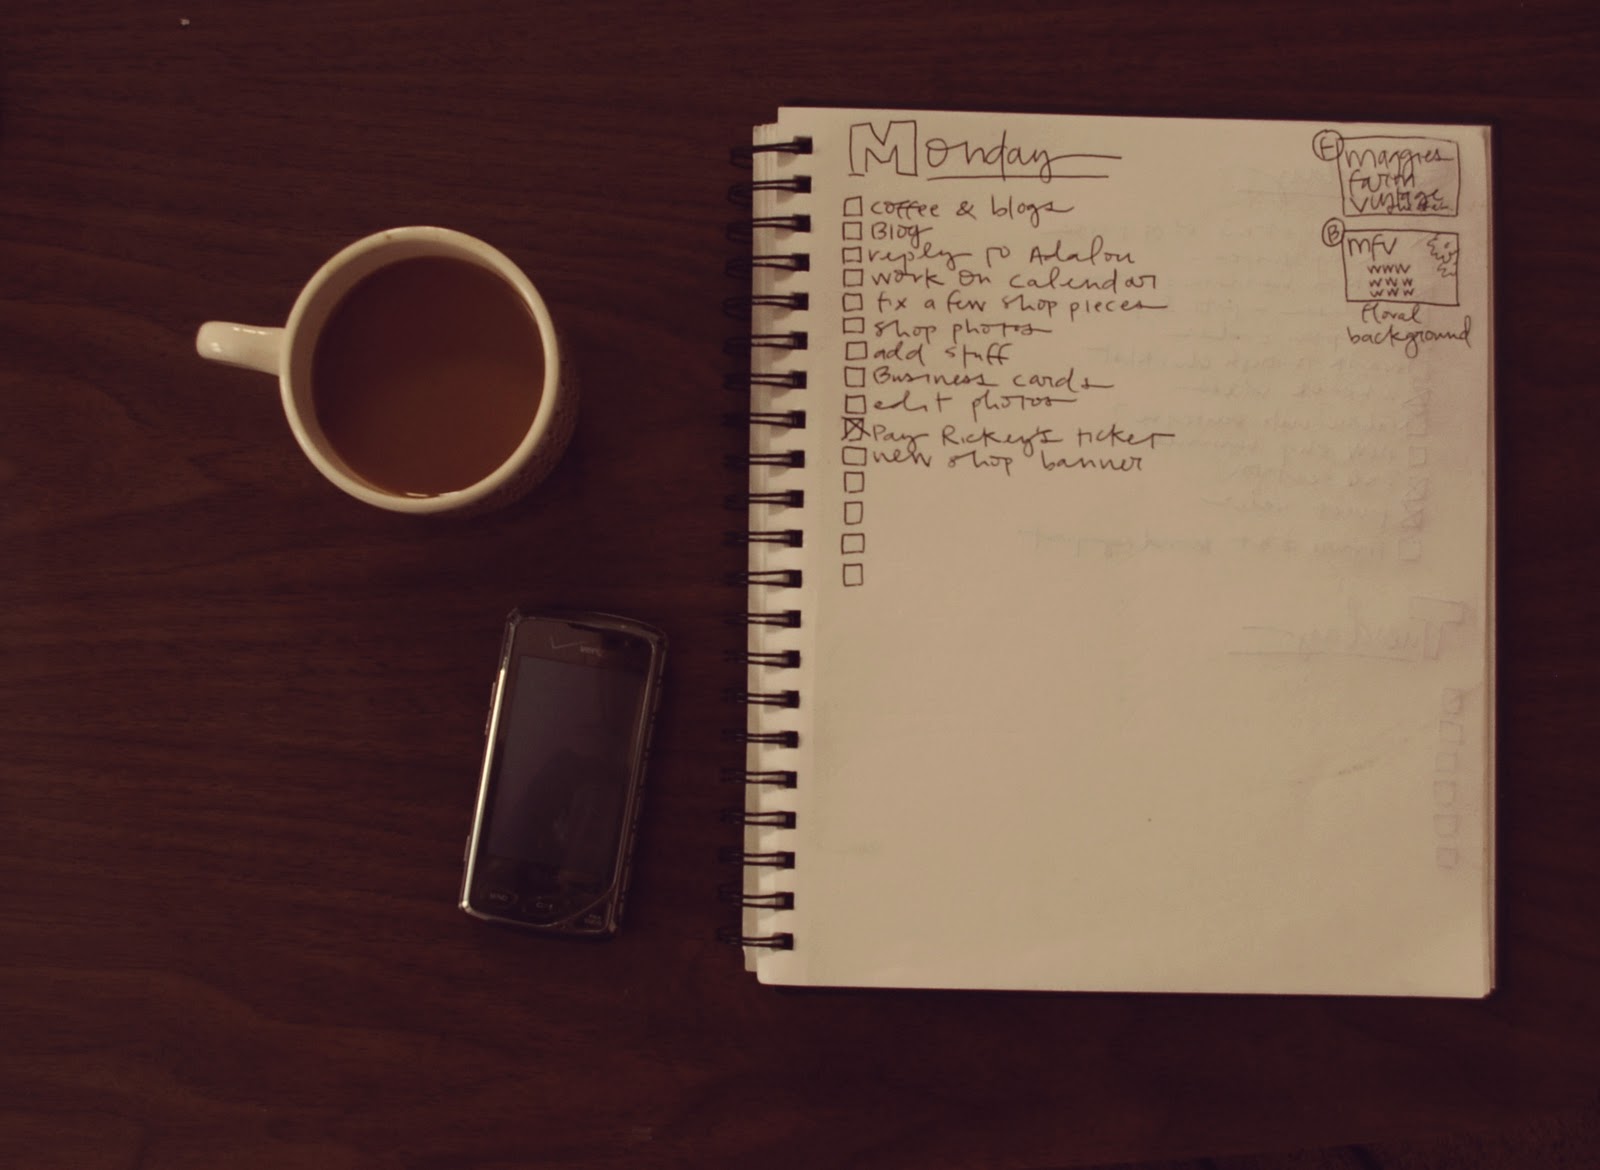 Monday
coffee & blogs
Blog
reply to Adalou
work on calendar
fix a few shop pieces
shop photos
add stuff
Business cards
edit photos
Pay Rickey's ticket
new shop banner
F
margies
farm
vintage
B
mfv
www
www
www
floral
background